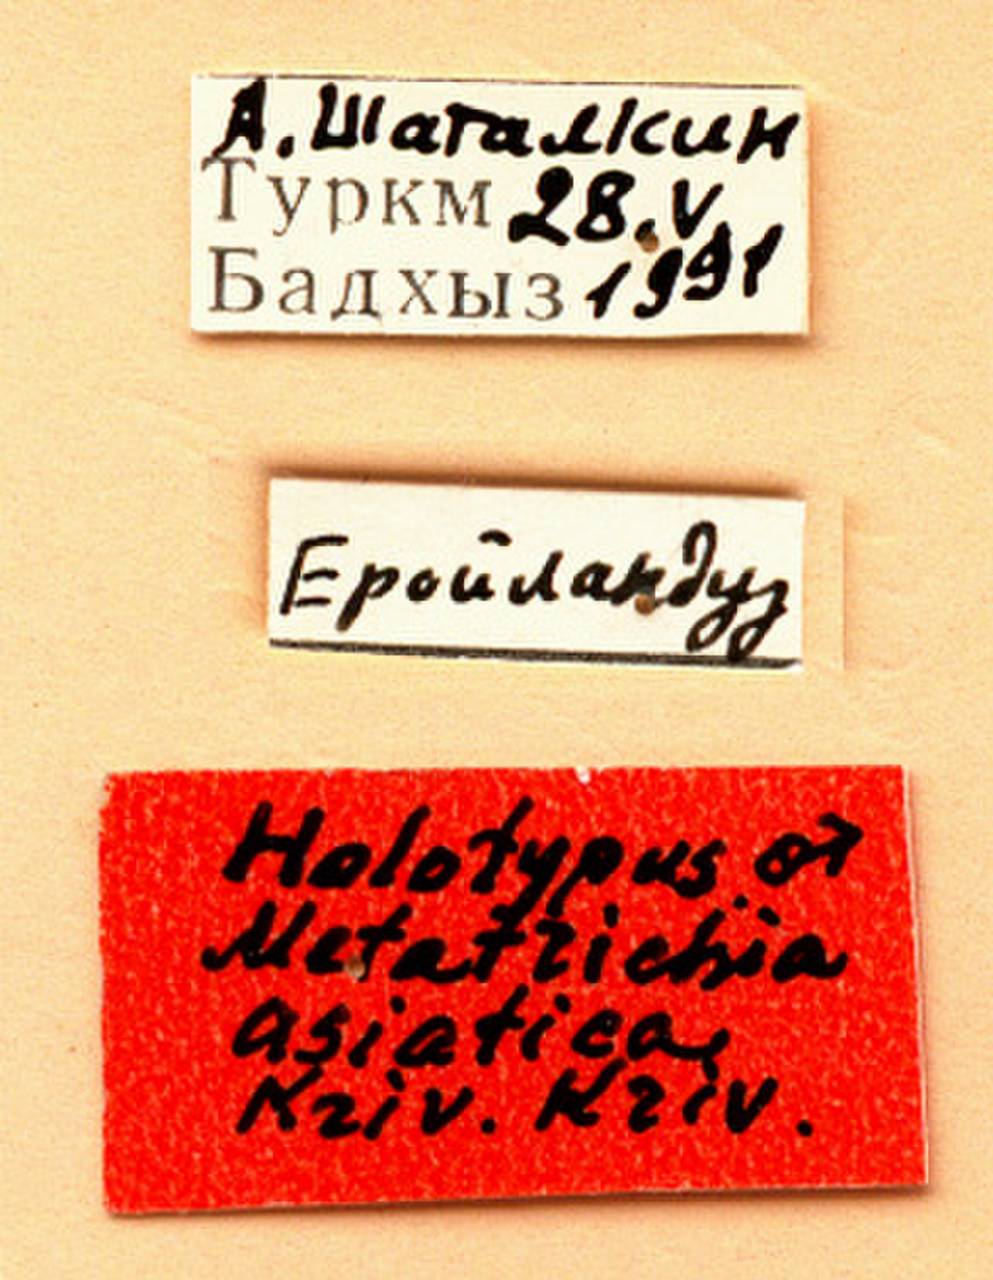 А. Шаталкин
Туркм 28.V.
Бадхыз 1991
Еройландуз
Holotypus ♂
Metatrichia
asiatica
Kriv. Kriv.